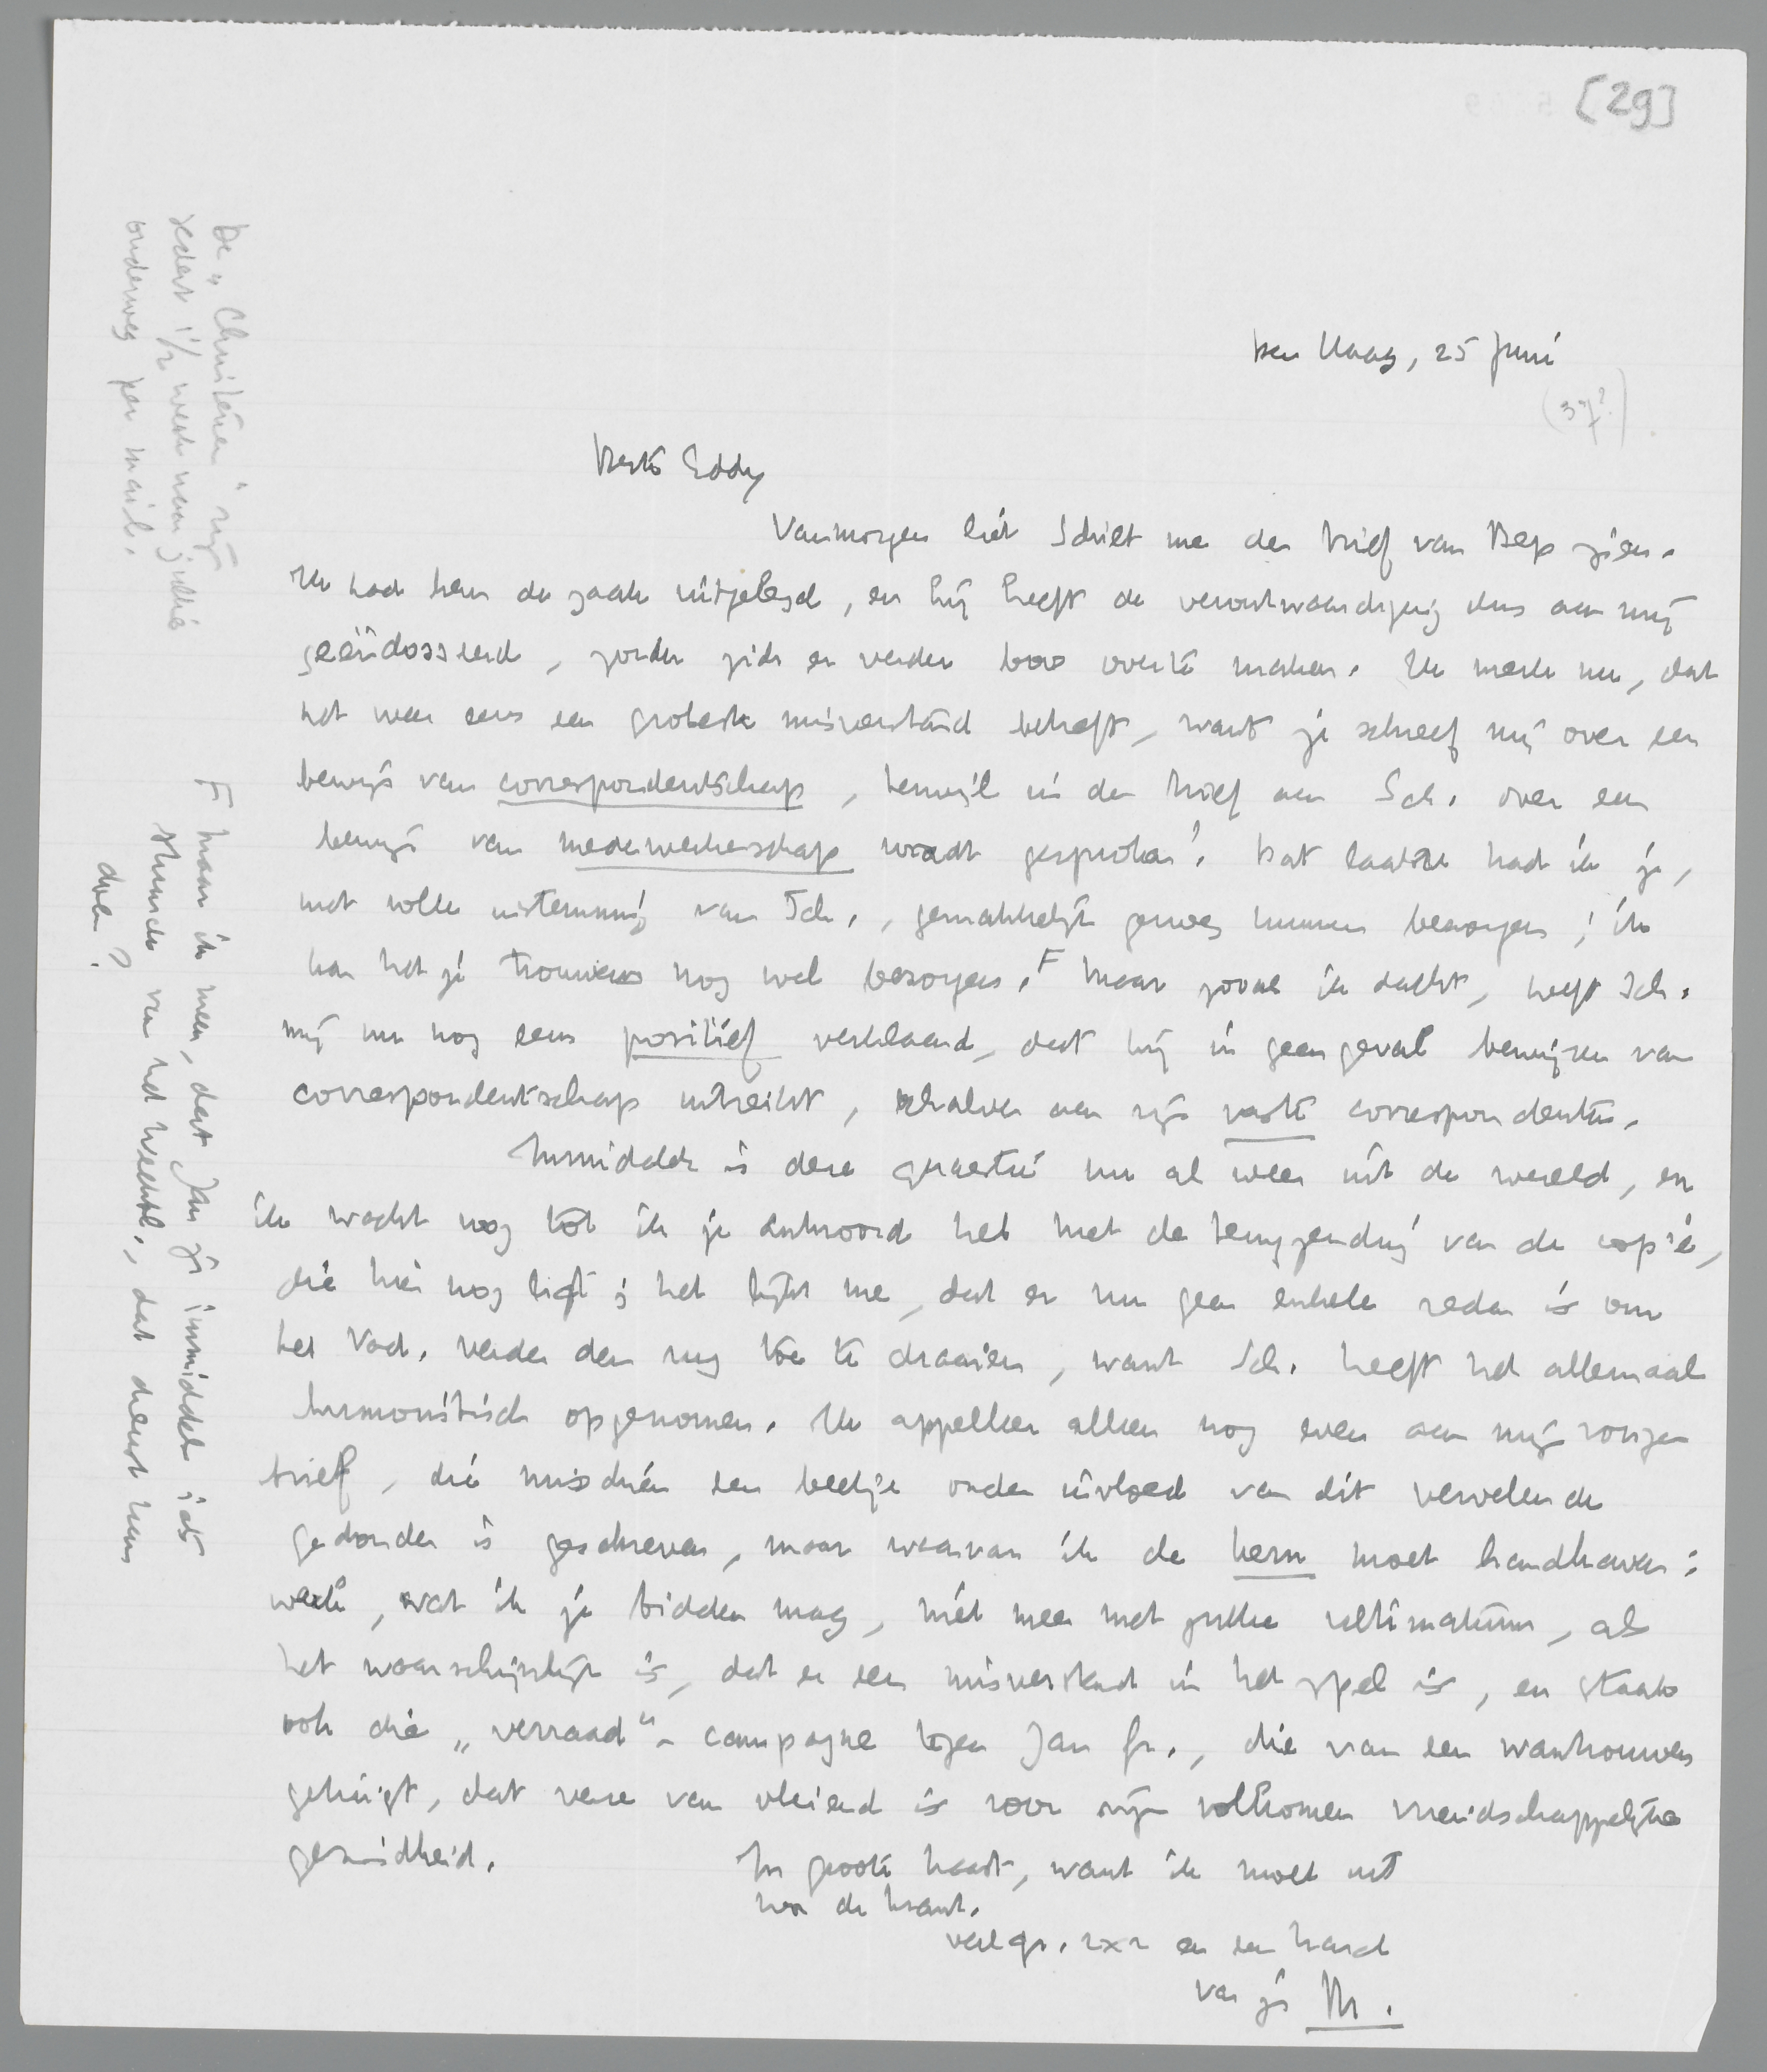 [29]
Den Haag, 25 Juni
(37?)
Beste Eddy
Vanmorgen liet Schilt me den brief van Bep zien.
Ik had hem de zaak uitgelegd, en hij heeft de verontwaardiging dus aan mij
geëndosseerd, zonder zich er verder boos over te maken. Ik merk nu, dat
het weer eens een grotesk misverstand betreft, want je schreef mij over een
bewijs van correspondentschap, terwijl in den brief aan Sch. over een
bewijs van medewerkerschap wordt gesproken! Dat laatste had ik je,
met volle instemming van Sch., gemakkelijk genoeg kunnen bezorgen; ik
kan het je trouwens nog wel bezorgen. F Maar zooals ik dacht, heeft Sch.
mij nu nog eens positief verklaard, dat hij in geen geval bewijzen van
correspondentschap uitreikt, behalve aan zijn vaste correspondenten.
Inmiddels is deze quaestie nu al weer uit de wereld, en
ik wacht nog tot ik je antwoord heb met de terugzending van de copie,
die hier nog ligt; het lijkt me, dat er nu geen enkele reden is om
het Vad. verder den rug toe te draaien, want Sch. heeft het allemaal
humoristisch opgenomen. Ik appelleer alleen nog even aan mijn vorigen
brief, die misschien een beetje onder invloed van dit vervelende
gedonder is geschreven, maar waarvan ik de kern moet handhaven:
werk, wat ik je bidden mag, niet meer met zulke ultimatums, als
het waarschijnlijk is, dat er een misverstand in het spel is, en staak
ook die „verraad"-campagne tegen Jan Gr., die van een wantrouwen
getuigt, dat verre van vleiend is voor zijn volkomen vriendschappelijke
gezindheid.
In groote haast, want ik moet uit
voor de krant.
veel gr. 2x2 en een hand
van je M.
F maar ik meen, dat Jan je inmiddels iets
stuurde van het Weekbl., dat dienst kan
doen?
De „Christenen" zijn
sedert 1/2 week naar jullie
onderweg per mail.